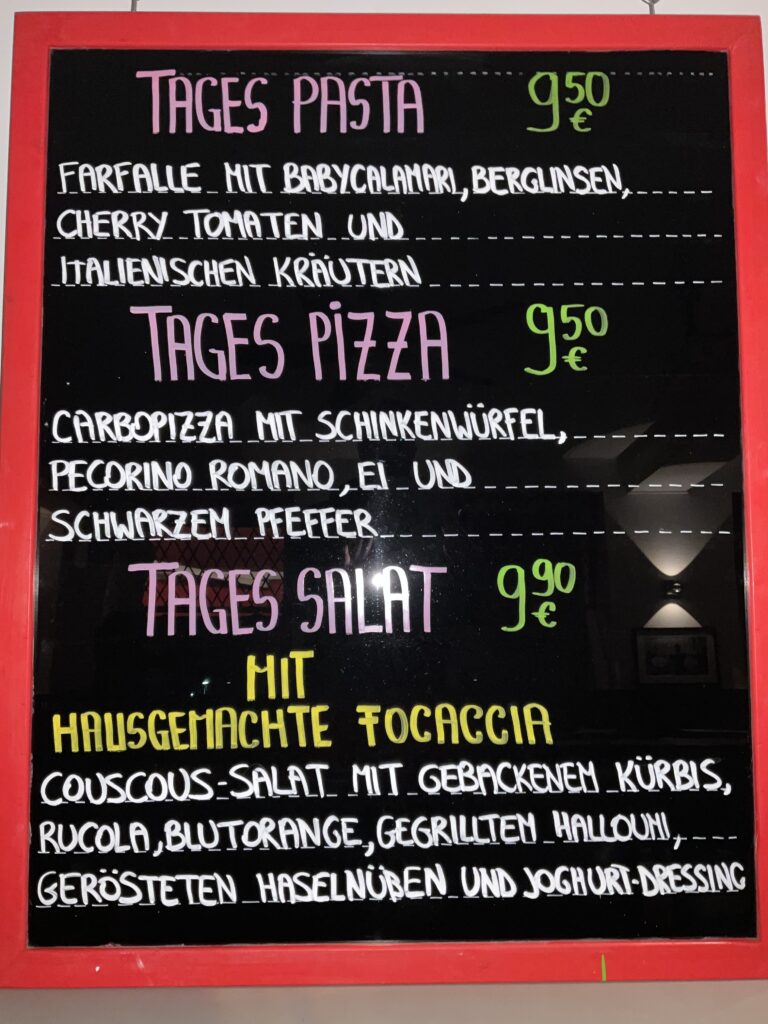 TAGES PASTA 9,50 €
FARFALLE MIT BABYCALAMARI, BERGLINSEN,
CHERRY TOMATEN UND
ITALIENISCHEN KRÄUTERN
TAGES PIZZA 9,50 €
CARBOPIZZA MIT SCHINKENWÜRFEL,
PECORINO ROMANO, EI UND
SCHWARZEM PFEFFER
TAGES SALAT 9,90 €
MIT
HAUSGEMACHTE FOCACCIA
COUSCOUS-SALAT MIT GEBACKENEM KÜRBIS,
RUCOLA, BLUTORANGE, GEGRILLTEM HALLOUMI,
GERÖSTETEN HASELNÜßEN UND JOGHURT-DRESSING